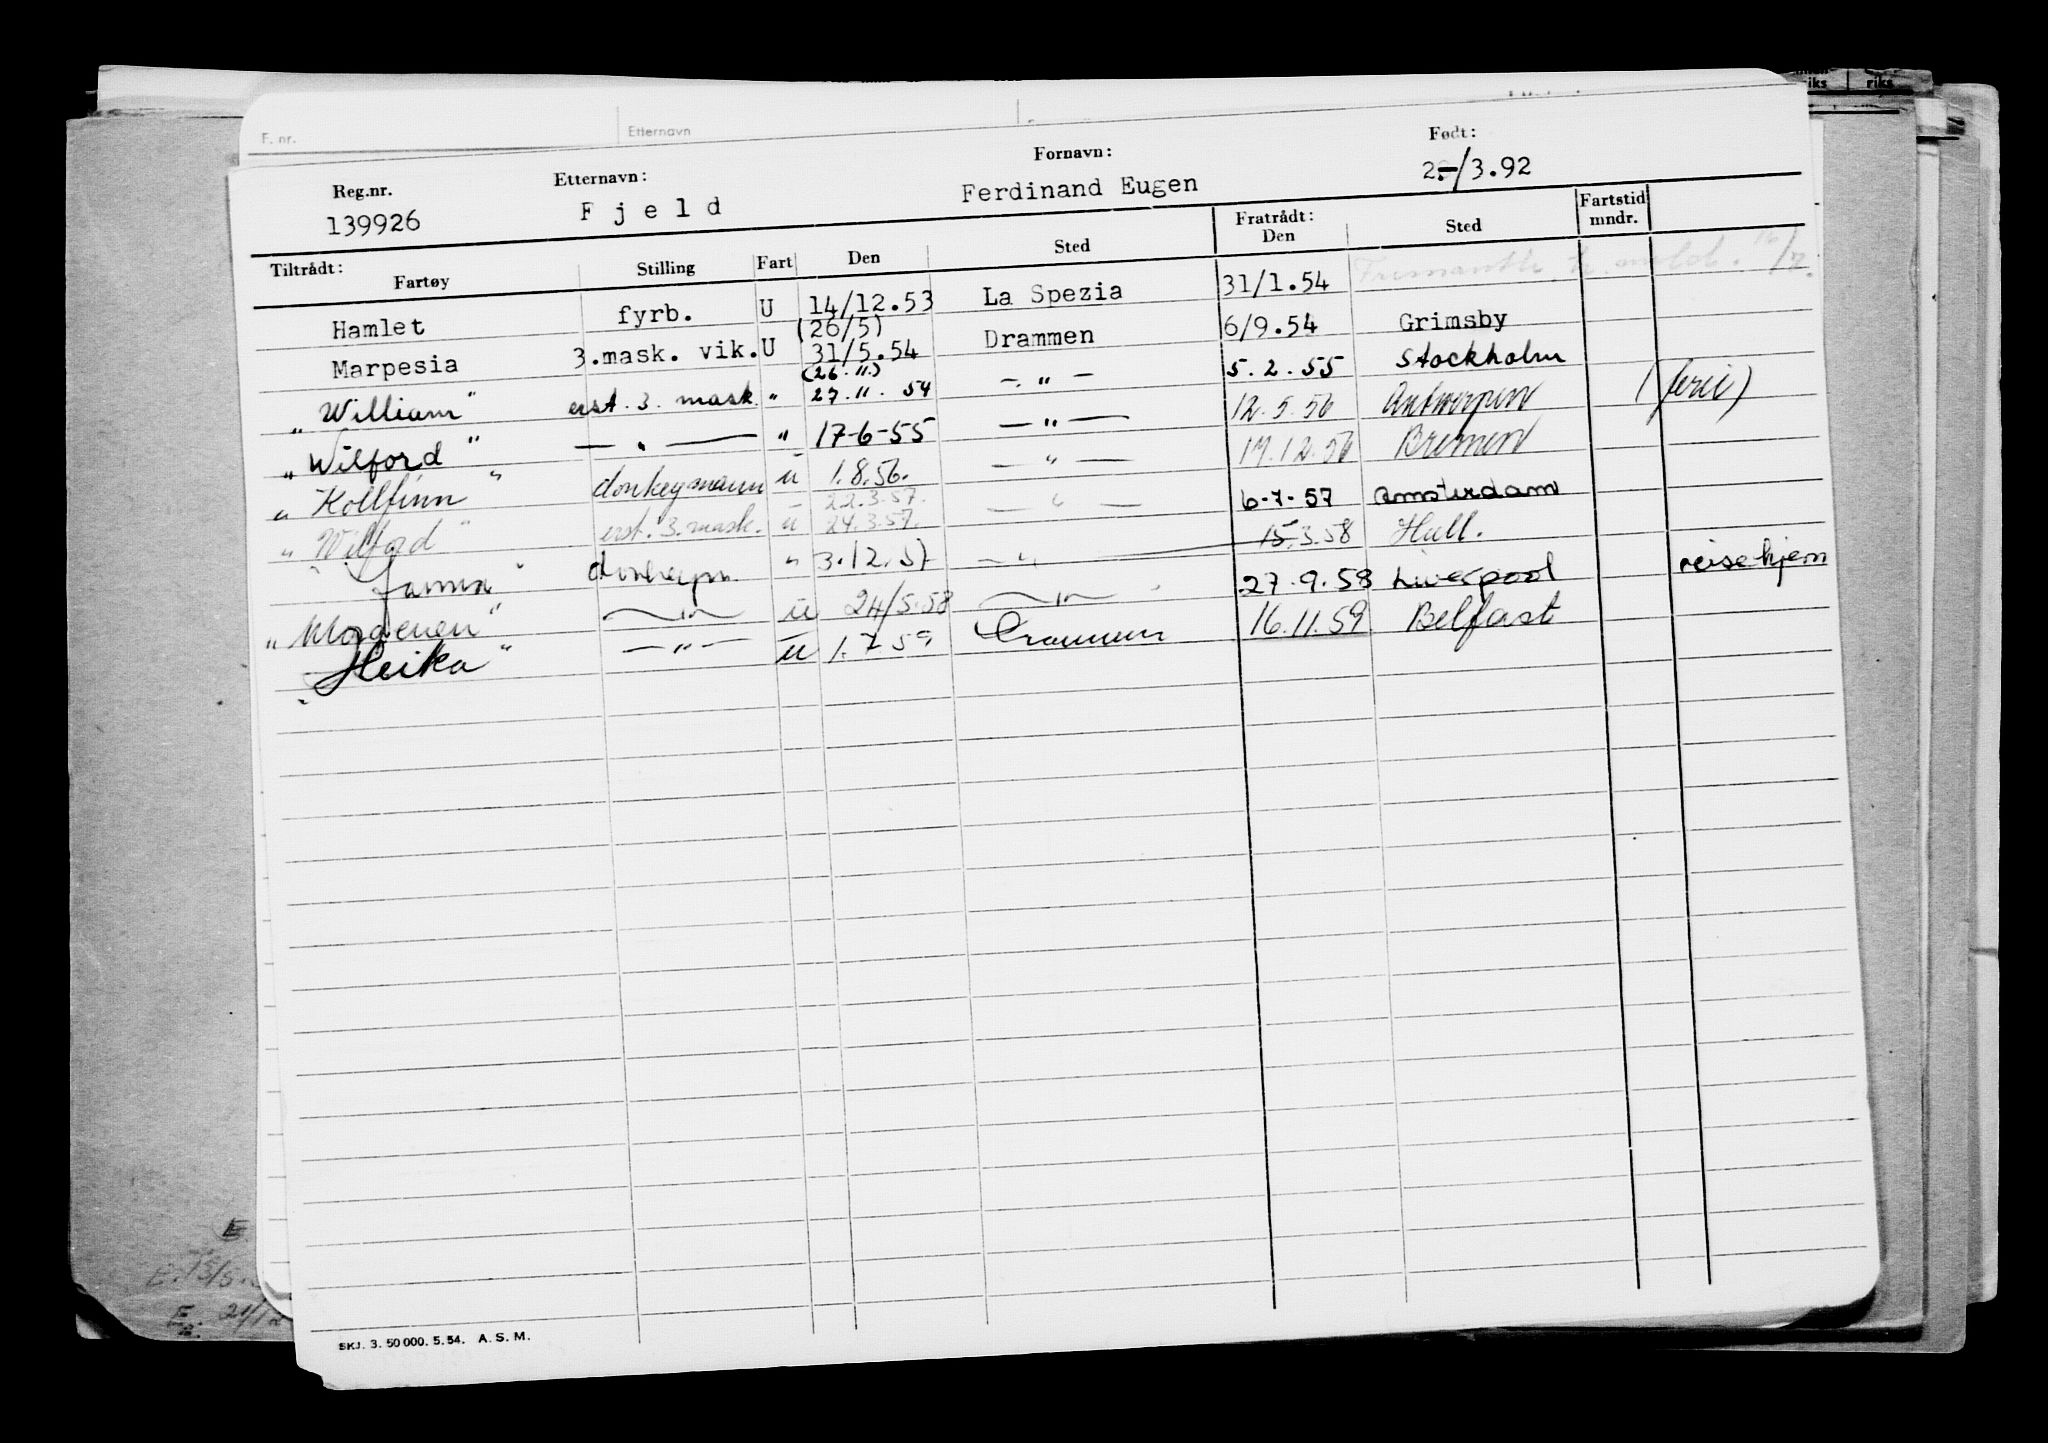 F. nr. Etternavn
Reg.nr. Etternavn: Fornavn: Født:
139926 Fjeld Ferdinand Eugen 2.-/3.92
Tiltrådt: Fratrådt:
Fartøy Stilling Fart Den Sted Den Sted Fartstid mndr.
Hamlet fyrb. U 14/12.53 La Spezia 31/1.54
(26/5)
Marpesia 3.mask. vik. U 31/5.54 Drammen 6/9.54 Grimsby
(26.11.)
"William" erst. 3. mask. " 27.11.54 - " - 5.2.55 Stockholm
"Wilford" - " - " 17-6-55 - " - 12.5.56 Antwerpen (ferie)
"Kollfinn" donkeymann u 1.8.56. - " - 17.12.56 Bremen
22.3.57.
"Wilford" erst. 3. mask. u 24.3.57. - " - 6-7-57 Amsterdam
donkeym. " 3.12.57 - " - 15.3.58 Hull.
- " - u 24/5.58 - " - 27.9.58 Liverpool reise hjem
"Heika" - " - u 1.7.59 Drammen 16.11.59 Belfast
SKJ. 3. 50 000. 5. 54. A. S. M.